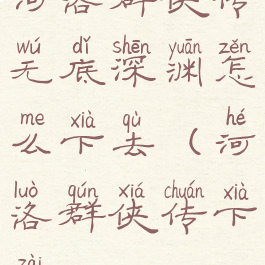 河洛群侠传
wú dǐ shēn yuān zěn
无底深渊怎
me xià qù hé
么下去(河
luò qún xiá chuán xià
洛群侠传下
zài